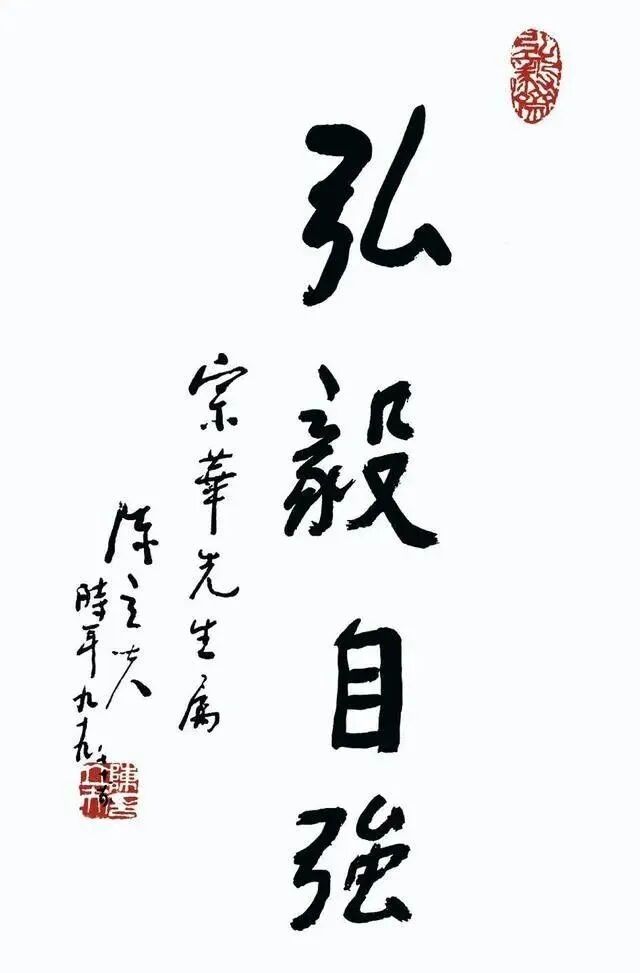 弘毅自強
宗華先生属
陳立夫
時年九十九